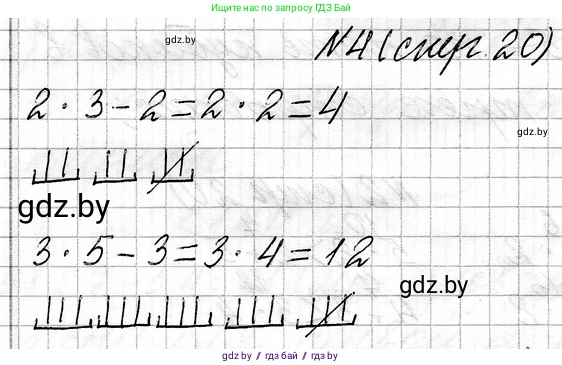 Ищите нас по запросу ГДЗ Бай
gdz.by
№4 (стр. 20)
2 · 3 - 2 = 2 · 2 = 4
gdz.by
gdz.by
3 · 5 - 3 = 3 · 4 = 12
gdz.by
gdz.by / гдз бай / гдз.by